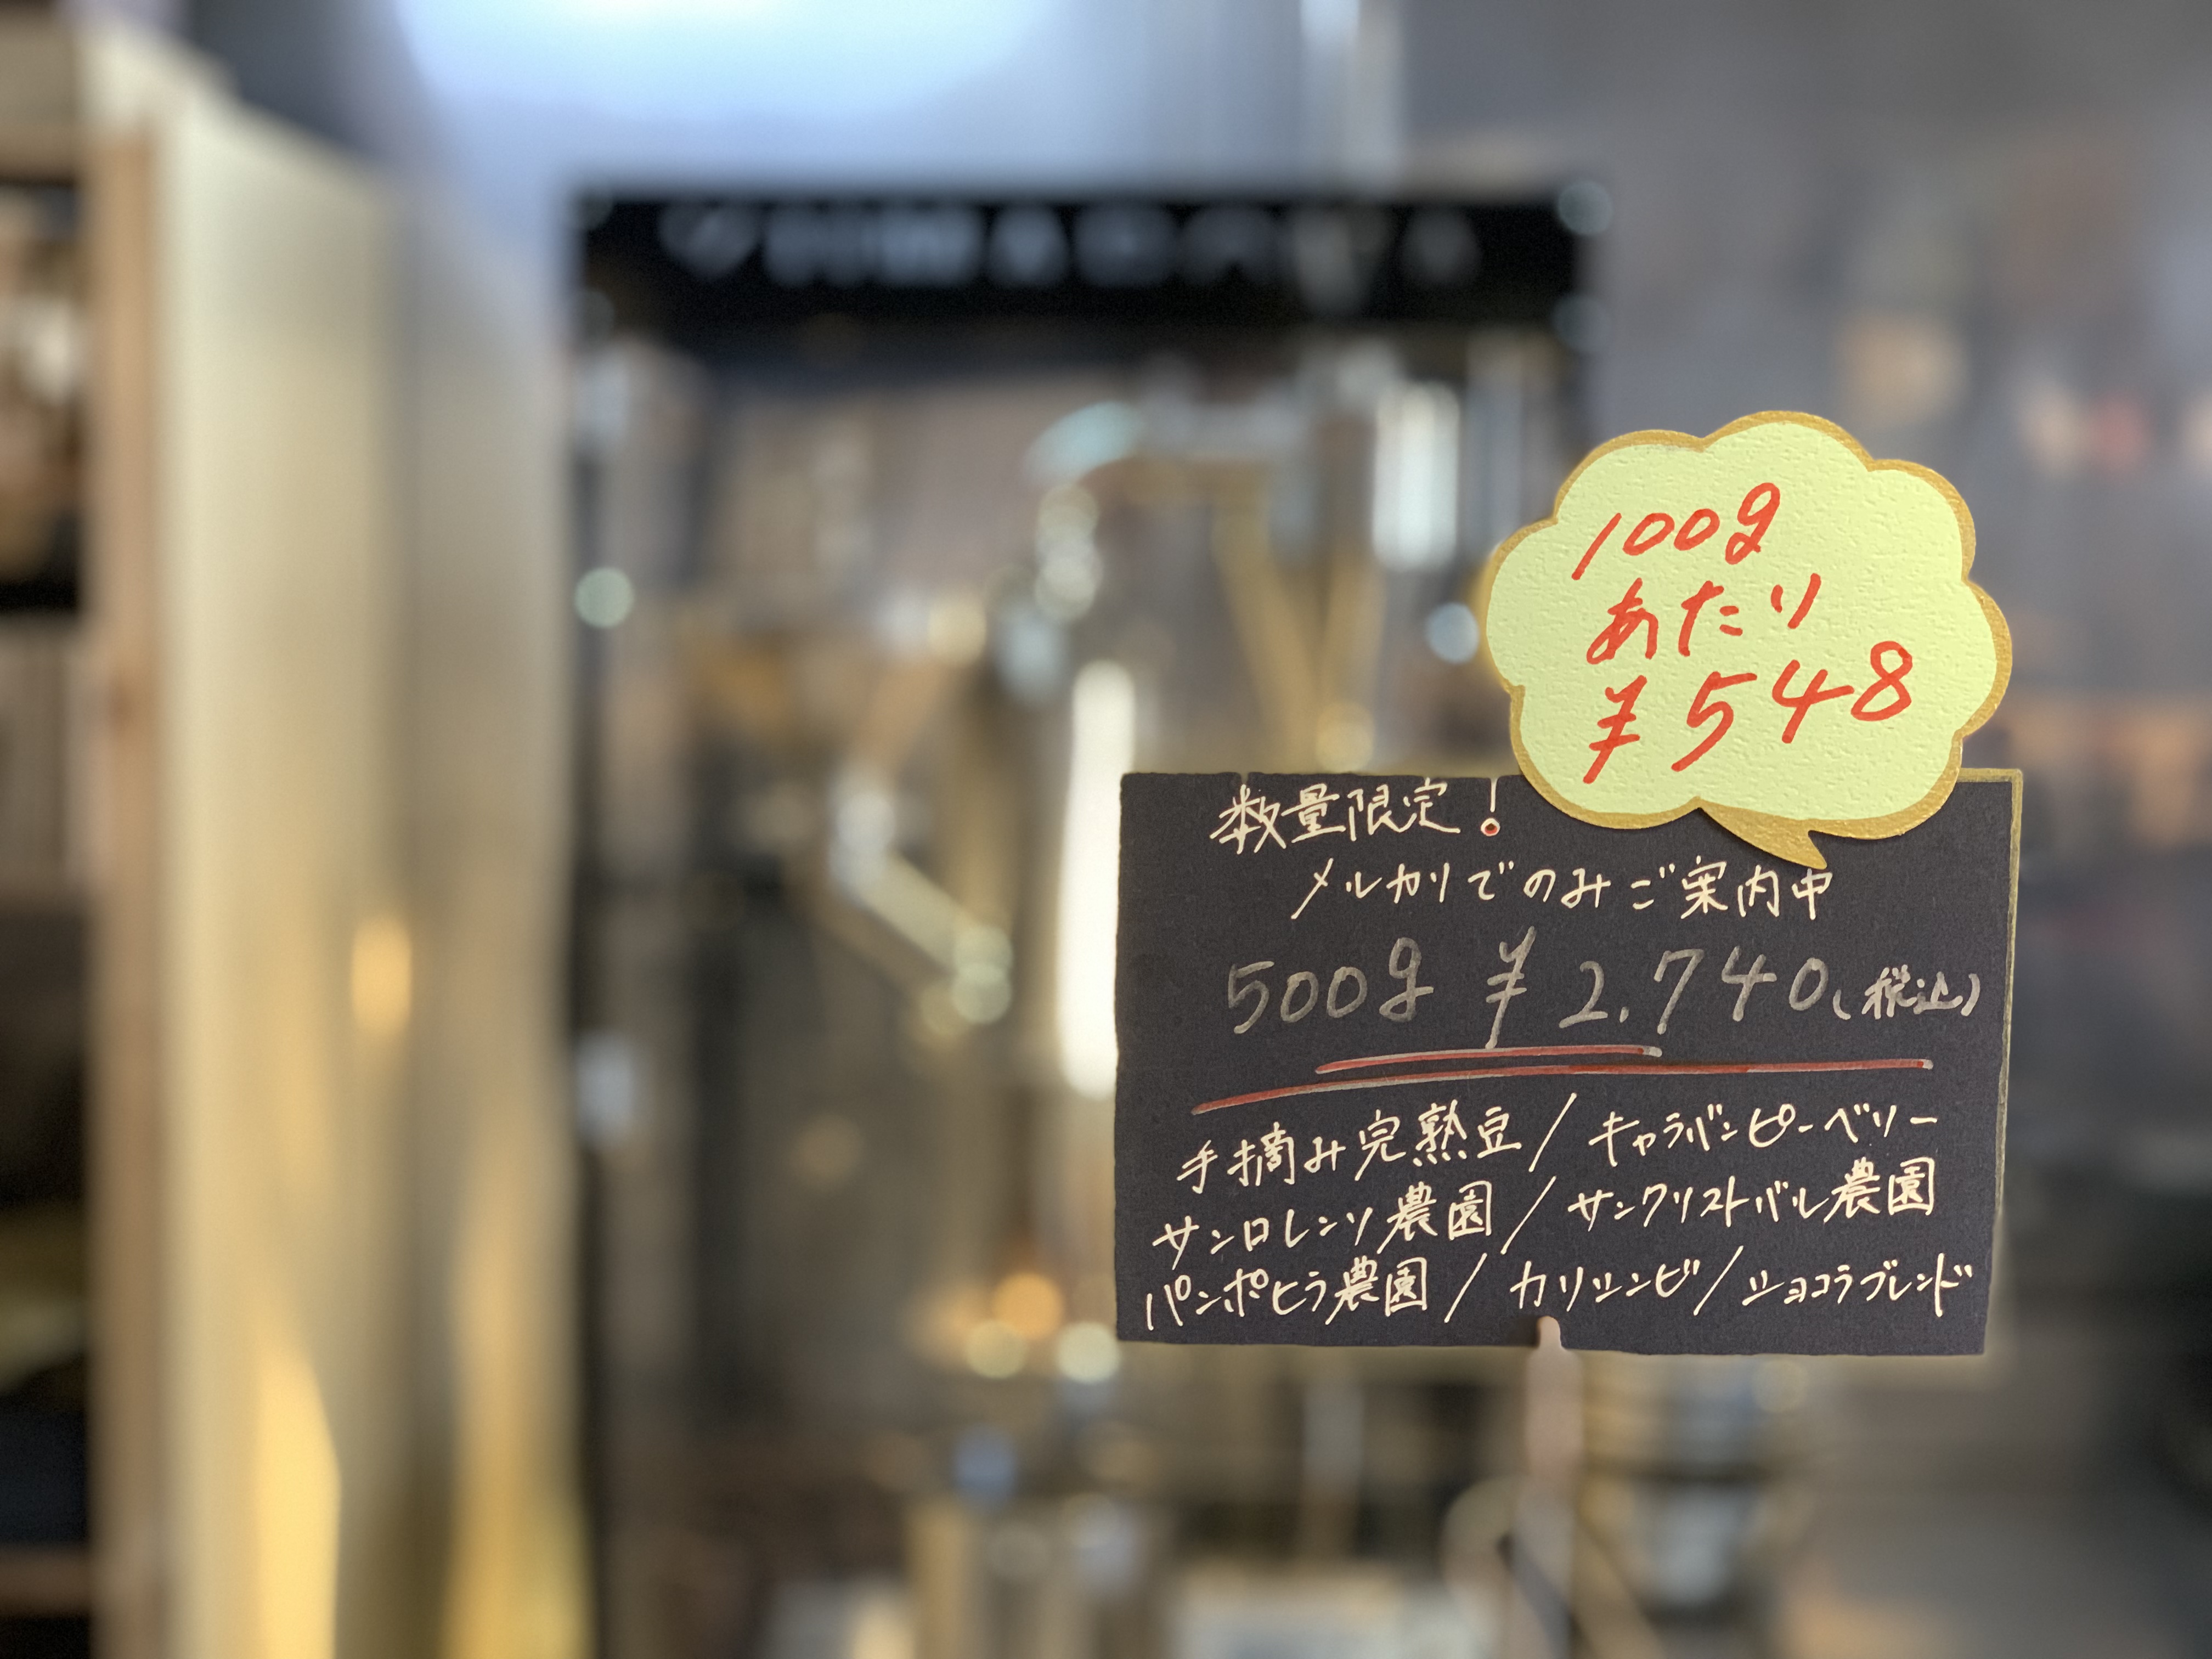 100g
あたり
¥548
数量限定!
メルカリでのみご案内中
500g ¥2.740(税込)
手摘み完熟豆/キャラバンピーベリー
サンロレンソ農園/サンクリストバル農園
パンポヒラ農園/カリツンビ/ショコラブレンド